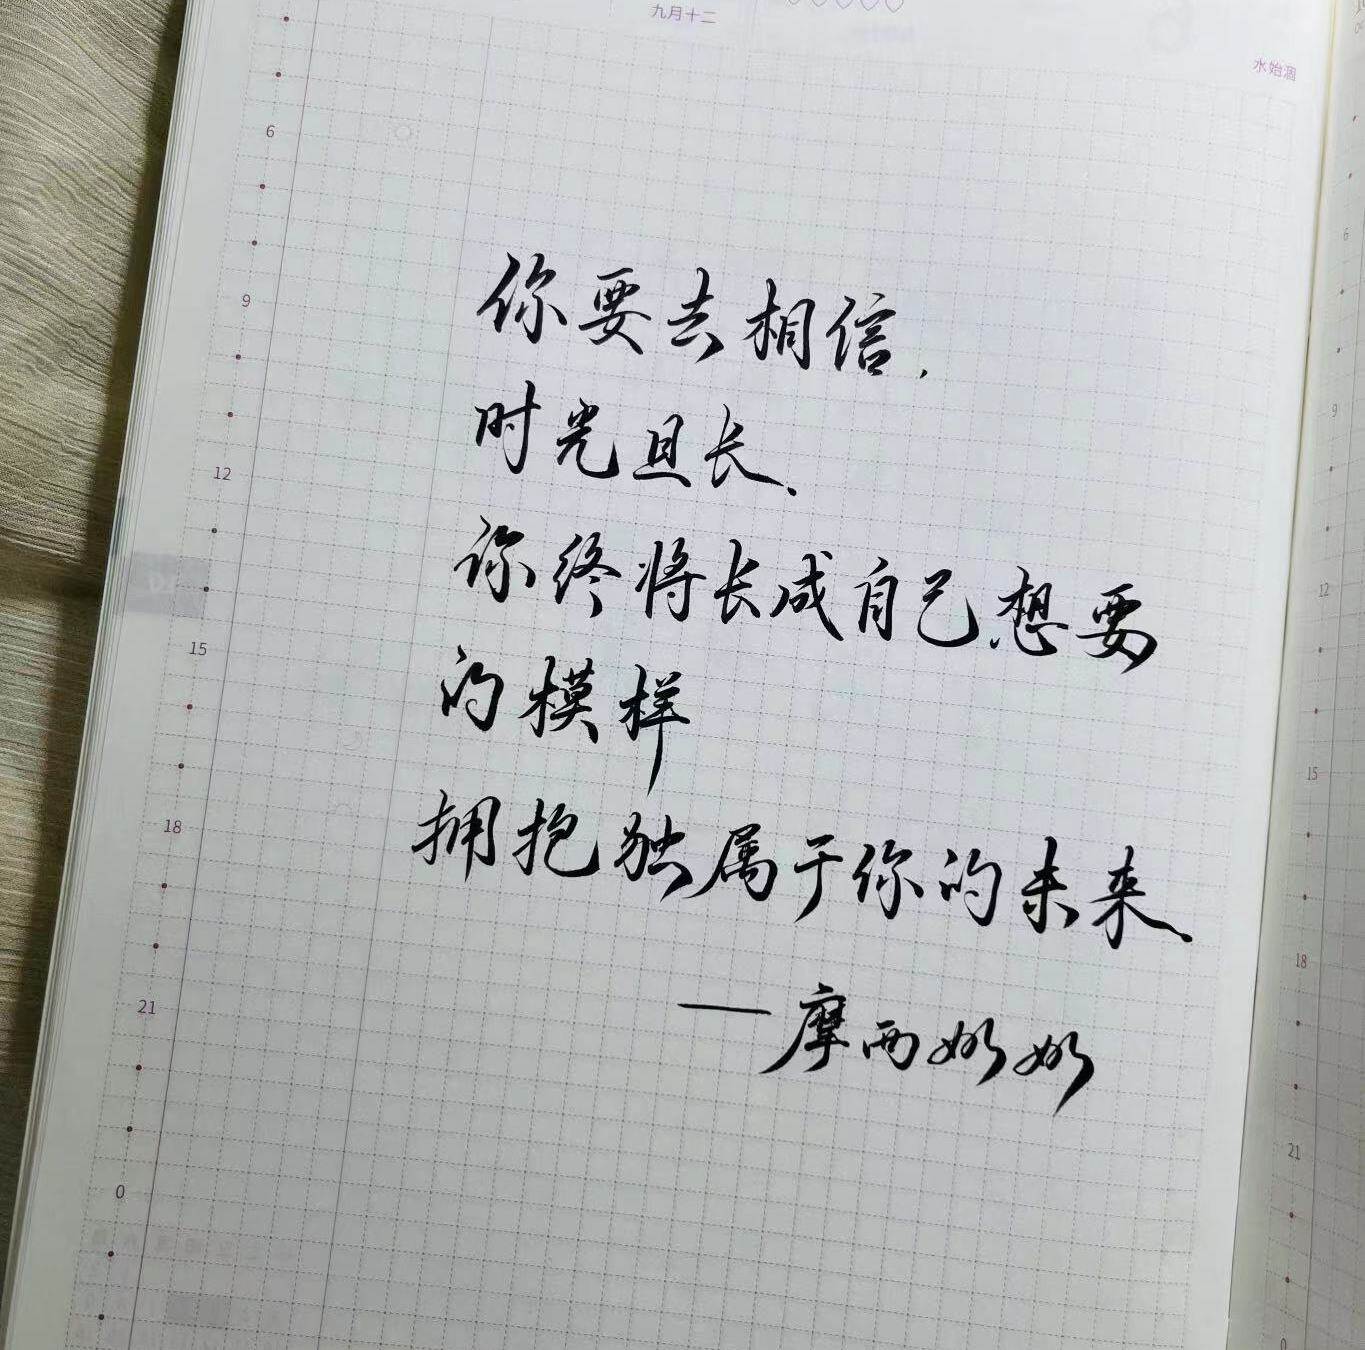 九月十二
水始涸
6
9
12
15
18
21
0
你要去相信.
时光且长、
你终将长成自己想要
的模样
拥抱独属于你的未来、
——摩西妳妳
6
9
12
15
18
21
0